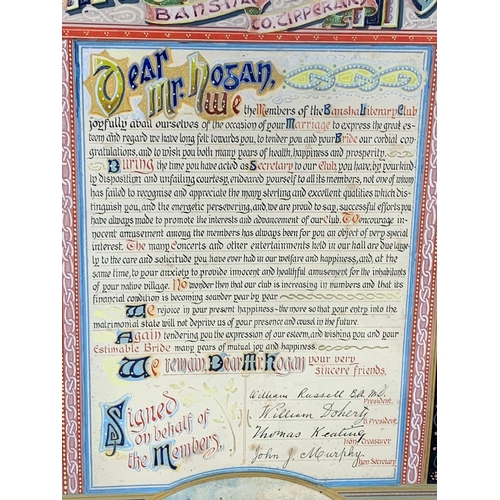 Bansha
Co. Tipperary
Dear
Mr. Hogan,
We the Members of the Bansha Literary Club
joyfully avail ourselves of the occasion of your Marriage to express the great es-
teem and regard we have long felt towards you, to tender you and your Bride our cordial con-
gratulations, and to wish you both many years of health, happiness and prosperity.
During the time you have acted as Secretary to our Club, you have, by your kind-
ly disposition and unfailing courtesy, endeared yourself to all its members, not one of whom
has failed to recognise and appreciate the many sterling and excellent qualities which dis-
tinguish you, and the energetic, persevering, and, we are proud to say, successful efforts you
have always made to promote the interests and advancement of our Club. To encourage in-
nocent amusement among the members has always been for you an object of very special
interest. The many Concerts and other entertainments held in our hall are due large-
ly to the care and solicitude you have ever had in our welfare and happiness, and, at the
same time, to your anxiety to provide innocent and healthful amusement for the inhabitants
of your native village. No wonder then that our club is increasing in numbers and that its
financial condition is becoming sounder year by year.
We rejoice in your present happiness - the more so that your entry into the
matrimonial state will not deprive us of your presence and counsel in the future.
Again tendering you the expression of our esteem, and wishing you and your
Estimable Bride many years of mutual joy and happiness.
We remain, Dear Mr. Hogan your very
sincere friends.
William Russell B.A. M.D.
President.
William Doherty
V. President.
Thomas Keating
Hon Treasurer
John J Murphy
Hon Secretary
Signed
on behalf of
the Members.